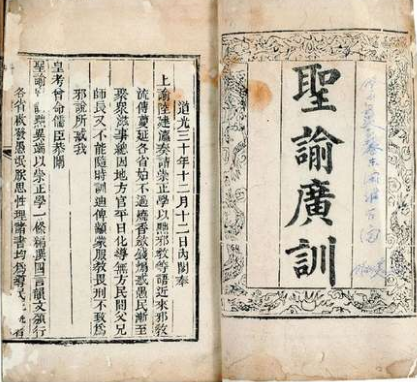 聖諭廣訓
道光三十年十二月十二日內閣奉
上諭陸建瀛奏請崇正學以黜邪教等語近來邪教
流傳蔓延各省始不過燒香斂錢煽惑愚民漸至
聚衆滋事總因地方官平日化導無方民間父兄
師長又不能隨時訓迪俾顓蒙服教畏刑不致爲
邪說所惑我
皇考曾命儒臣恭闡
聖諭廣訓黜異端以崇正學一條編撰四言韻文頒行
各省啟發愚氓厥思性理諸書均爲導民